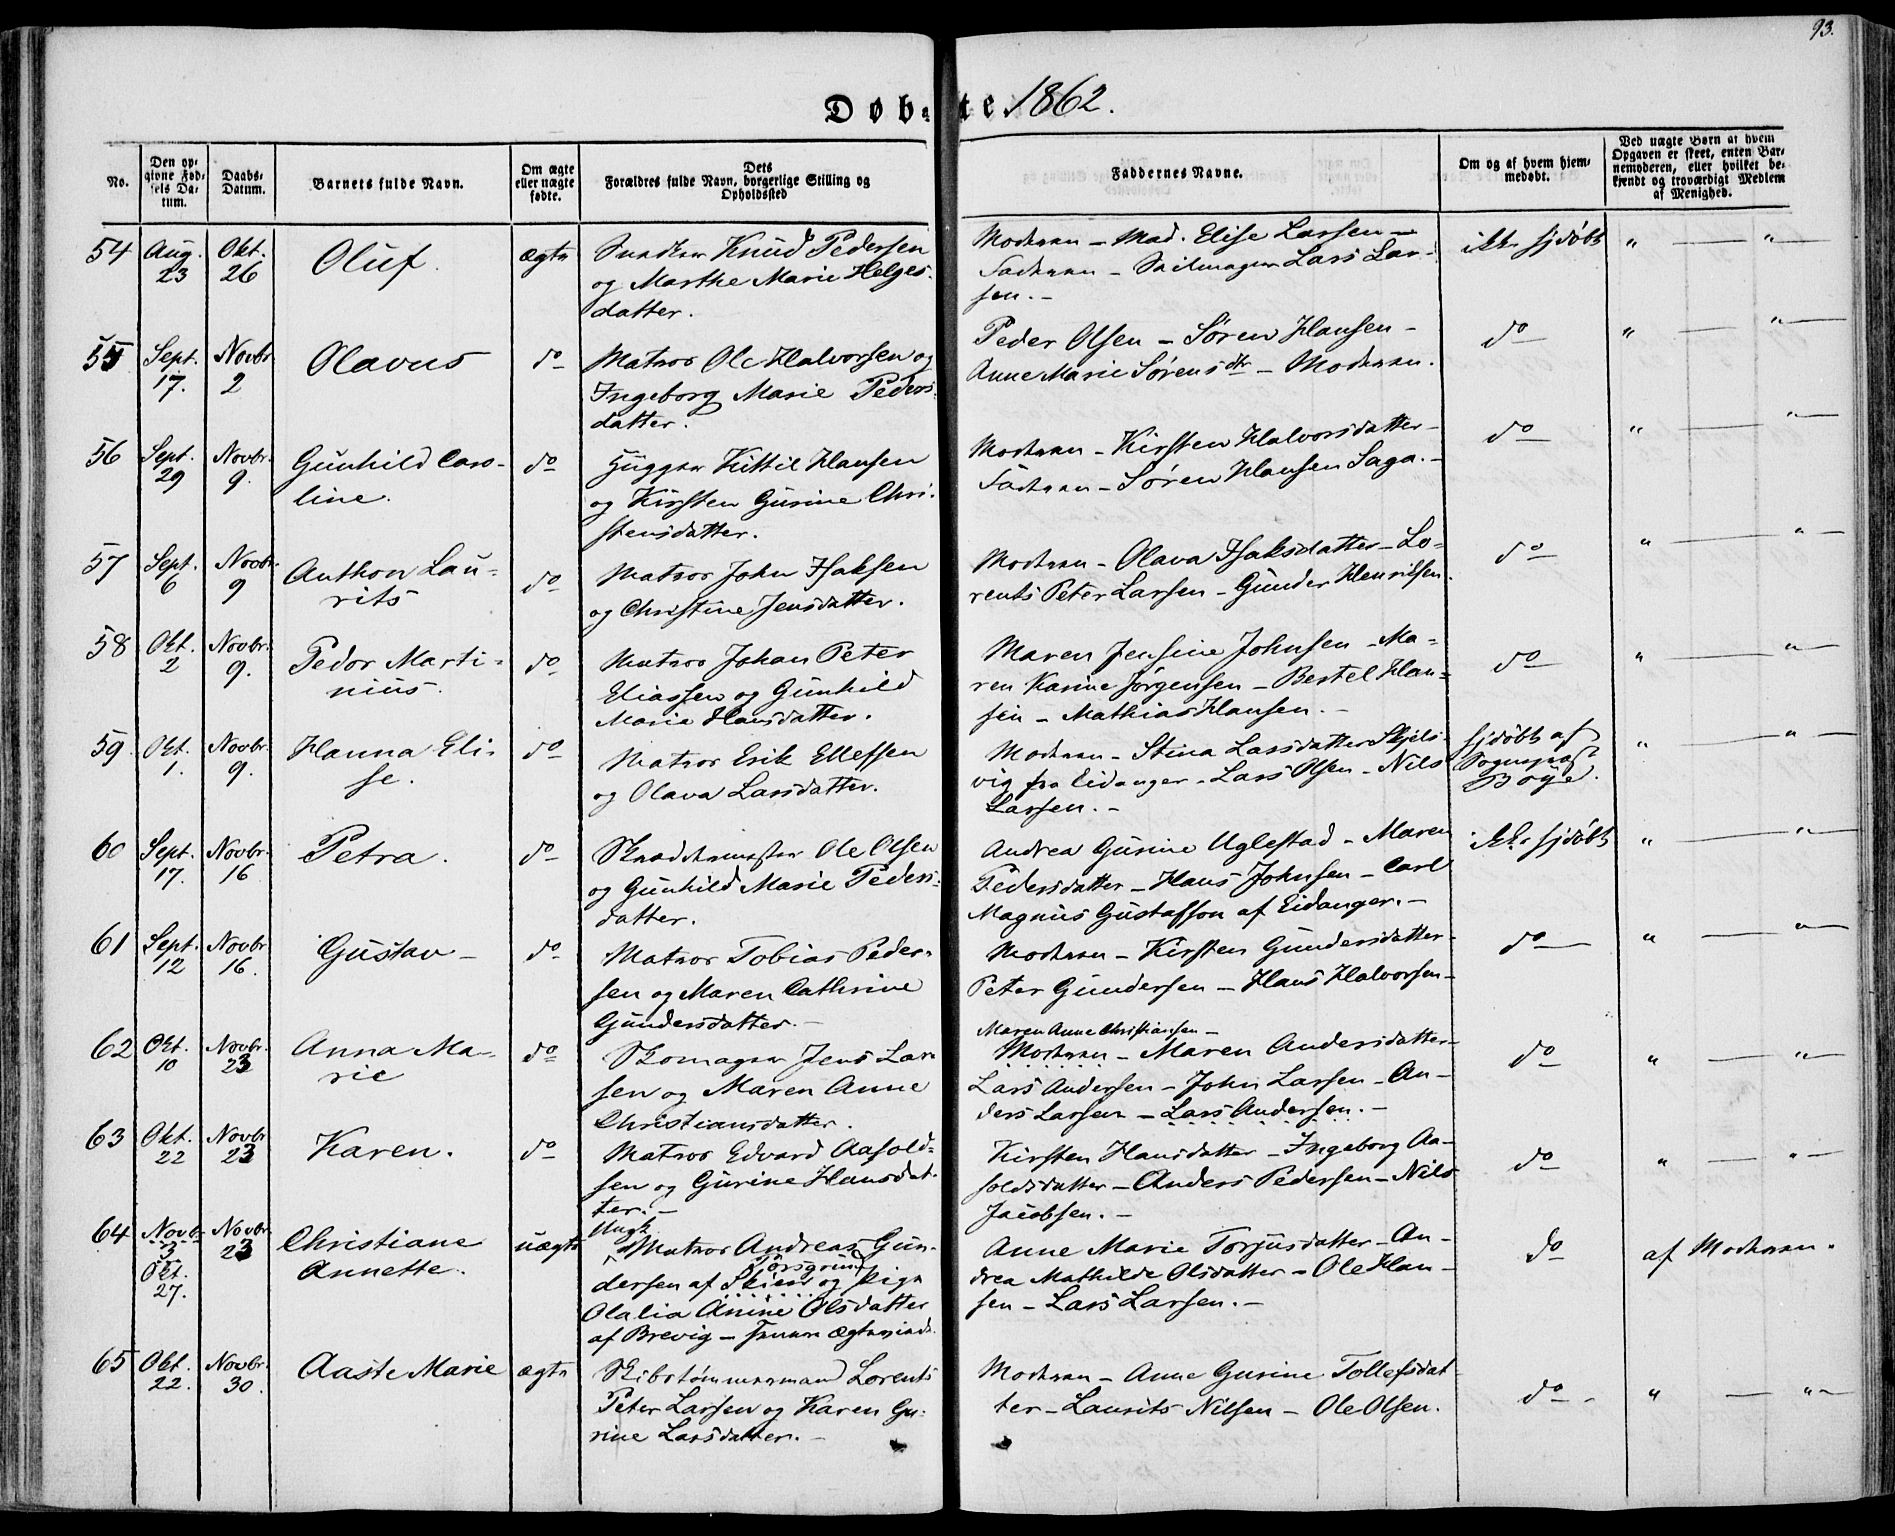 93.
Døb-te 1862.
No.
Den op-
givne Fød-
sels Da-
tum.
Daabs-
Datum.
Barnets fulde Navn.
Om ægte
eller uægte
fødte.
Dets
Forældres fulde Navn, borgerlige Stilling og
Opholdssted
Faddernes Navne.
Om og af hvem hjem-
medøbt.
Ved uægte Børn at hvem
Opgaven er skeet, enten Bar-
nemoderen, eller hvilket be-
kjendt og troværdigt Medlem
af Menighed.
54 Aug. 23 Okt. 26 Oluf. ægte
Snedker Knud Pedersen
og Marthe Marie Helges-
datter.
Moderen - Mad. Elise Larsen -
Faderen - Seilmager Lars Lar-
sen. -
ikke hjdøbt " — "
55 Sept. 17. Novbr 2 Olavus do
Matros Ole Halvorsen og
Ingeborg Marie Peders-
datter.
Peder Olsen - Søren Hansen -
Anne Marie Sørensdtr - Moderen.
do " — "
56 Sept. 29 Novbr. 9. Gunhild Caro-
line. do
Hugger Kittil Hansen
og Kirsten Gurine Chri-
stensdatter.
Moderen - Kirsten Halvorsdatter -
Faderen - Søren Hansen Saga. -
do " — "
57 Sept. 6 Novbr. 9 Anthon Lau-
rits do
Matros John Isaksen
og Christine Jensdatter.
Moderen - Olava Isaksdatter - Lo-
rents Peter Larsen - Gunder Henriksen.
do " — "
58 Okt. 2 Novbr. 9. Peder Marti-
nius. do
Matros Johan Peter
Eliassen og Gunhild
Maria Hansdatter.
Maren Jensine Johnsen - Ma-
ren Karine Jørgensen - Bertel Han-
sen - Mathias Hansen. -
do " — "
59. Okt. 1. Novbr. 9. Hanna Eli-
se. do
Matros Erik Ellefsen
og Olava Larsdatter.
Moderen - Stina Larsdatter Skjels-
vig fra Eidanger - Lars Olsen - Nils
Larsen. -
hjdøbt af
Sognepræst
Boye. " — "
60 Sept. 17. Novbr. 16 Petra. do
Skræddermester Ole Olsen
og Gunhild Marie Peders-
datter.
Andrea Gurine Uglestad - Maren
Pedersdatter - Hans Johnsen - Carl
Magnus Gustafson af Eidanger. -
ikke hjdøbt " — "
61 Sept. 12 Novbr. 16. Gustav - do
Matros Tobias Peder-
sen og Maren Cathrine
Gundersdatter. -
Moderen - Kirsten Gundersdatter -
Peter Gundersen - Hans Halvorsen -
do " — "
62 Okt. 10 Novbr. 23 Anna Ma-
rie do
Skomager Jens Lar-
sen og Maren Anne
Christiansdatter.
Maren Anne Christiansen -
Moderen - Maren Andersdatter -
Lars Andersen - John Larsen - An-
ders Larsen - Lars Andersen. -
do " — "
63 Okt. 22 Novbr 23 Karen. do
Matros Edvard Aasold-
sen og Gurine Hansdat-
ter. -
Kirsten Hansdatter - Ingeborg Aa-
soldsdatter - Anders Pedersen - Nils
Jacobsen. -
do " — "
64 Novbr. 3 Okt. 27. Novbr. 23 Christiane
Annette. uægte
Ungk.
Matros Andreas Gun-
dersen af Skien Porsgrund og Pige
Olalia Anine Olsdatter
af Brevig -
Anne Marie Torjusdatter - An-
drea Mathilde Olsdatter - Ole Han-
sen - Lars Larsen. -
do af Moderen.
65 Okt. 22. Novbr. 30. Aaste Marie ægte
Skibstømmermand Lorents
Peter Larsen og Karen Gu-
rine Larsdatter. -
Moderen - Anne Gurine Tollefsdat-
ter - Laurits Nilsen - Ole Olsen.
do - " — "